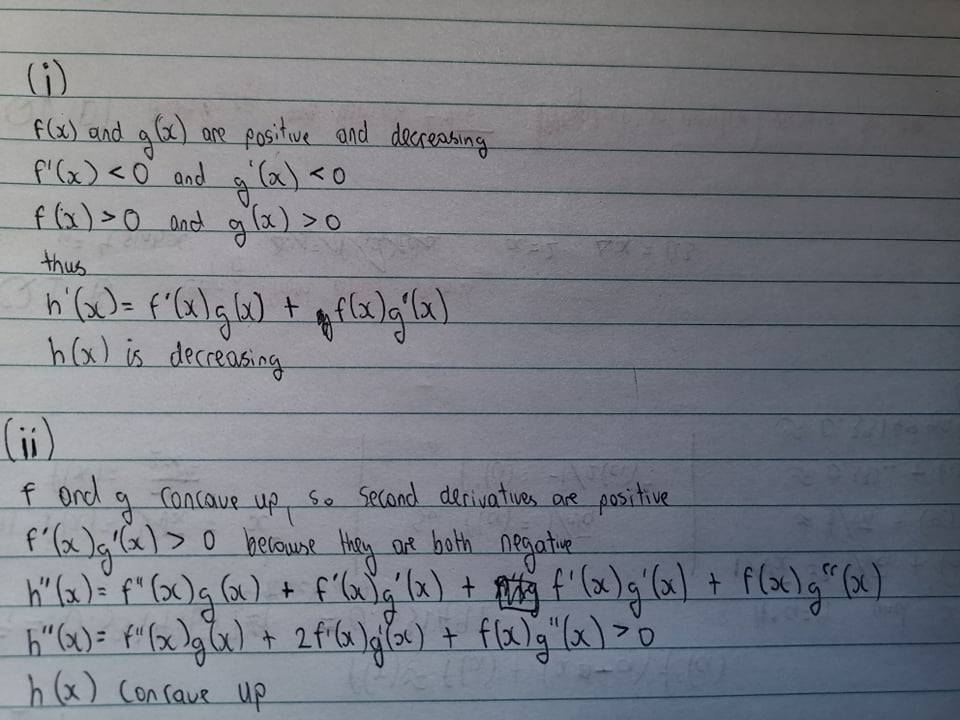 (i)
f(x) and g(x) are positive and decreasing
f'(x) < 0 and g'(x) < 0
f(x) > 0 and g(x) > 0
thus
h'(x) = f'(x)g(x) + f(x)g'(x)
h(x) is decreasing
(ii)
f and g concave up, so second derivatives are positive
f'(x)g'(x) > 0 because they are both negative
h''(x) = f''(x)g(x) + f'(x)g'(x) + f'(x)g'(x) + f(x)g''(x)
h''(x) = f''(x)g(x) + 2f'(x)g'(x) + f(x)g''(x) > 0
h(x) concave up